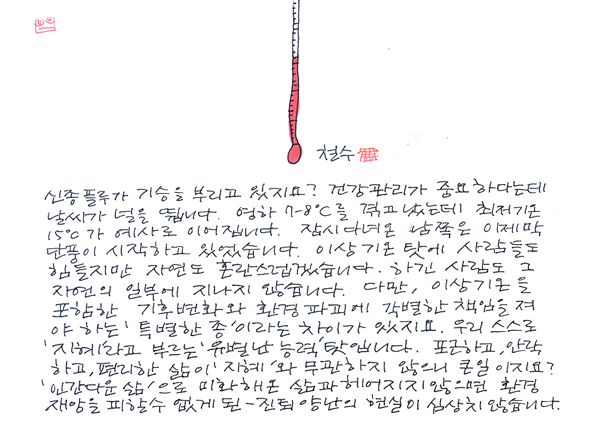 철수
신종플루가 기승을 부리고 있지요? 건강관리가 중요하다는데
날씨가 널을 뜁니다. 영하 7-8℃를 겪고 났는데 최저기온
15℃가 예사로 이어집니다. 잠시 다녀온 남쪽은 이제 막
단풍이 시작하고 있었습니다. 이상기온 탓에 사람들도
힘들지만 자연도 혼란스럽겠습니다. 하긴 사람도 그
자연의 일부에 지나지 않습니다. 다만, 이상기온을
포함한 기후변화와 환경파괴에 각별한 책임을 져
야 하는 '특별한 종'이라는 차이가 있지요. 우리 스스로
'지혜'라고 부르는 '유별난 능력' 탓입니다. 포근하고, 안락
하고, 편리한 삶이 '지혜'와 무관하지 않으니 큰일이지요?
'인간다운 삶'으로 미화해온 삶과 헤어지지 않으면 환경
재앙을 피할 수 없게 된-진퇴양난의 현실이 심상치 않습니다.